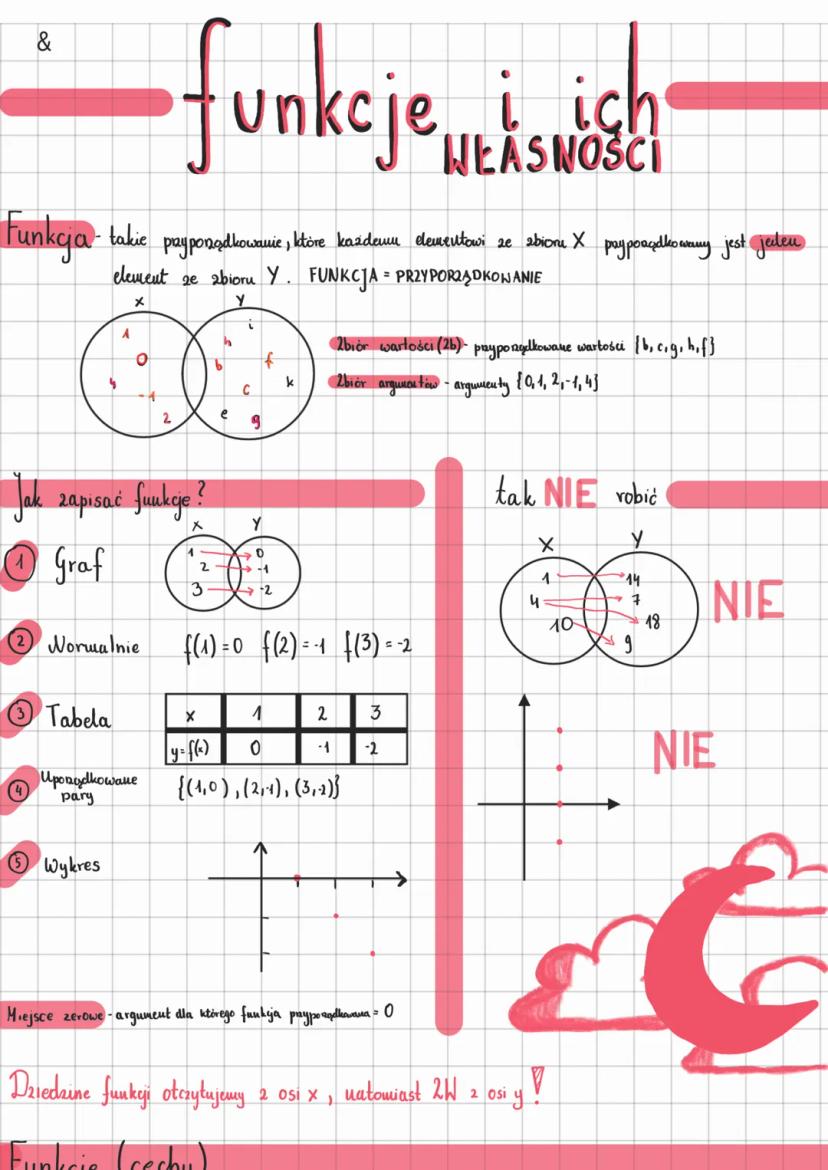 &
funkcje i ich
WŁASNOŚCI
Funkcja - takie przyporządkowanie, które każdemu elementowi ze zbioru X przyporządkowany jest jeden
element ze zbioru Y. FUNKCJA = PRZYPORZĄDKOWANIE
X Y
1 0 4 -1 2
i h b f k c e g
Zbiór wartości (Zb) - przyporządkowane wartości {b, c, g, h, f}
Zbiór argumentów - argumenty {0, 1, 2, -1, 4}
Jak zapisać funkcje?
1 Graf
X Y
1 0
2 -1
3 -2
2 Normalnie f(1) = 0 f(2) = -1 f(3) = -2
3 Tabela
x 1 2 3
y = f(x) 0 -1 -2
4 Uporządkowane
pary
{(1,0), (2,-1), (3,-2)}
5 Wykres
tak NIE robić
X Y
1 14
4 7
10 18
9
NIE
NIE
Miejsce zerowe - argument dla którego funkcja przyporządkowana = 0
Dziedzine funkcji otczytujemy z osi x, natomiast ZW z osi y!
Funkcje (cechy)